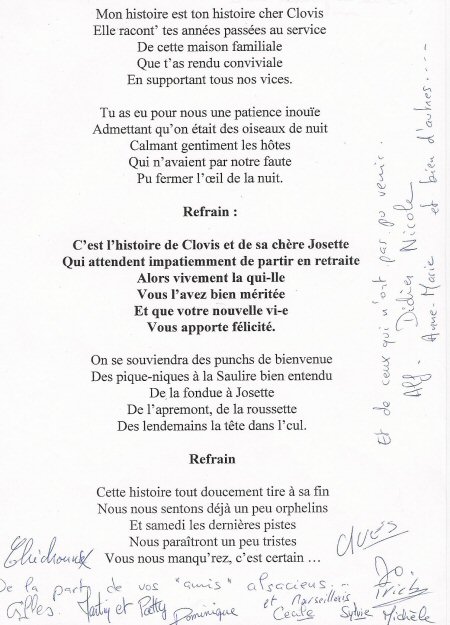 Mon histoire est ton histoire cher Clovis
Elle racont’ tes années passées au service
De cette maison familiale
Que t'as rendu conviviale
En supportant tous nos vices.
Tu as eu pour nous une patience inouïe
Admettant qu’on était des oiseaux de nuit
Calmant gentiment les hôtes
Qui n’avaient par notre faute
Pu fermer l’œil de la nuit.
Refrain :
C’est l’histoire de Clovis et de sa chère Josette
Qui attendent impatiemment de partir en retraite
Alors vivement la qui-lle
Vous l’avez bien méritée
Et que votre nouvelle vi-e
Vous apporte félicité.
On se souviendra des punchs de bienvenue
Des pique-niques à la Saulire bien entendu
De la fondue à Josette
De l’apremont, de la roussette
Des lendemains la tête dans l’cul.
Refrain
Cette histoire tout doucement tire à sa fin
Nous nous sentons déjà un peu orphelins
Et samedi les dernières pistes
Nous paraîtront un peu tristes
Vous nous manqu’rez, c’est certain …
Et de ceux qui n'ont pas pu venir.
Alf - Didier Nicole
Anne-Marie et bien d'autres....
De la part de vos "amis" alsaciens...
et Marseillais
Gilles. et Patty Dominique Sylvie Michèle
Jo.